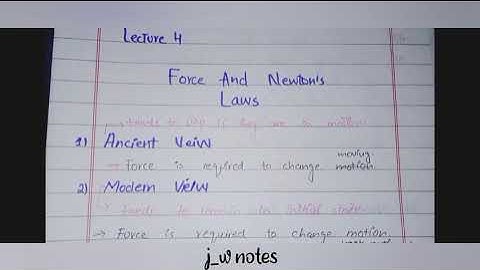 Lecture 4
Force And Newton's
Laws
1) Ancient Veiw
moving
→ Force is required to change motion.
2) Modern View
→ Force is required to change motion.
j_w notes